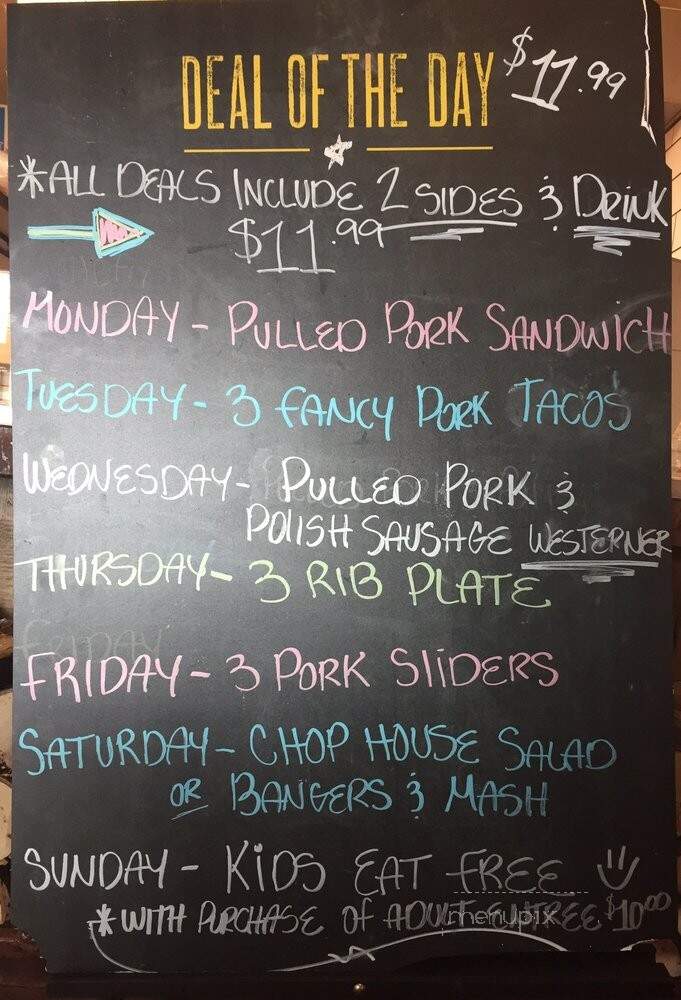 DEAL OF THE DAY $11.99
*ALL DEALS INCLUDE 2 SIDES & DRINK
$11.99
MONDAY - PULLED PORK SANDWICH
TUESDAY - 3 FANCY PORK TACOS
WEDNESDAY - PULLED PORK &
POLISH SAUSAGE WESTERNER
THURSDAY - 3 RIB PLATE
FRIDAY
FRIDAY - 3 PORK SLIDERS
SATURDAY - CHOP HOUSE SALAD
OR BANGERS & MASH
SUNDAY - KIDS EAT FREE
*WITH PURCHASE OF ADULT ENTREE $10.00
menupix